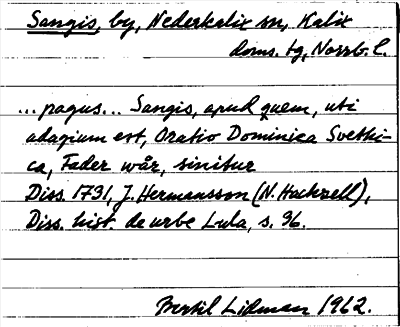 Sangis, by, Nederkalix sn, Kalix
doms. tg, Norrb. l.
... pagus... Sangis, apud quem, uti
adagium est, Oratio Dominica Svethi-
ca, Fader wår, finitur
Diss. 1731, J. Hermansson (N. Hackzell),
Diss. hist. de urbe Lula, s. 96.
Bertil Lidman 1962.